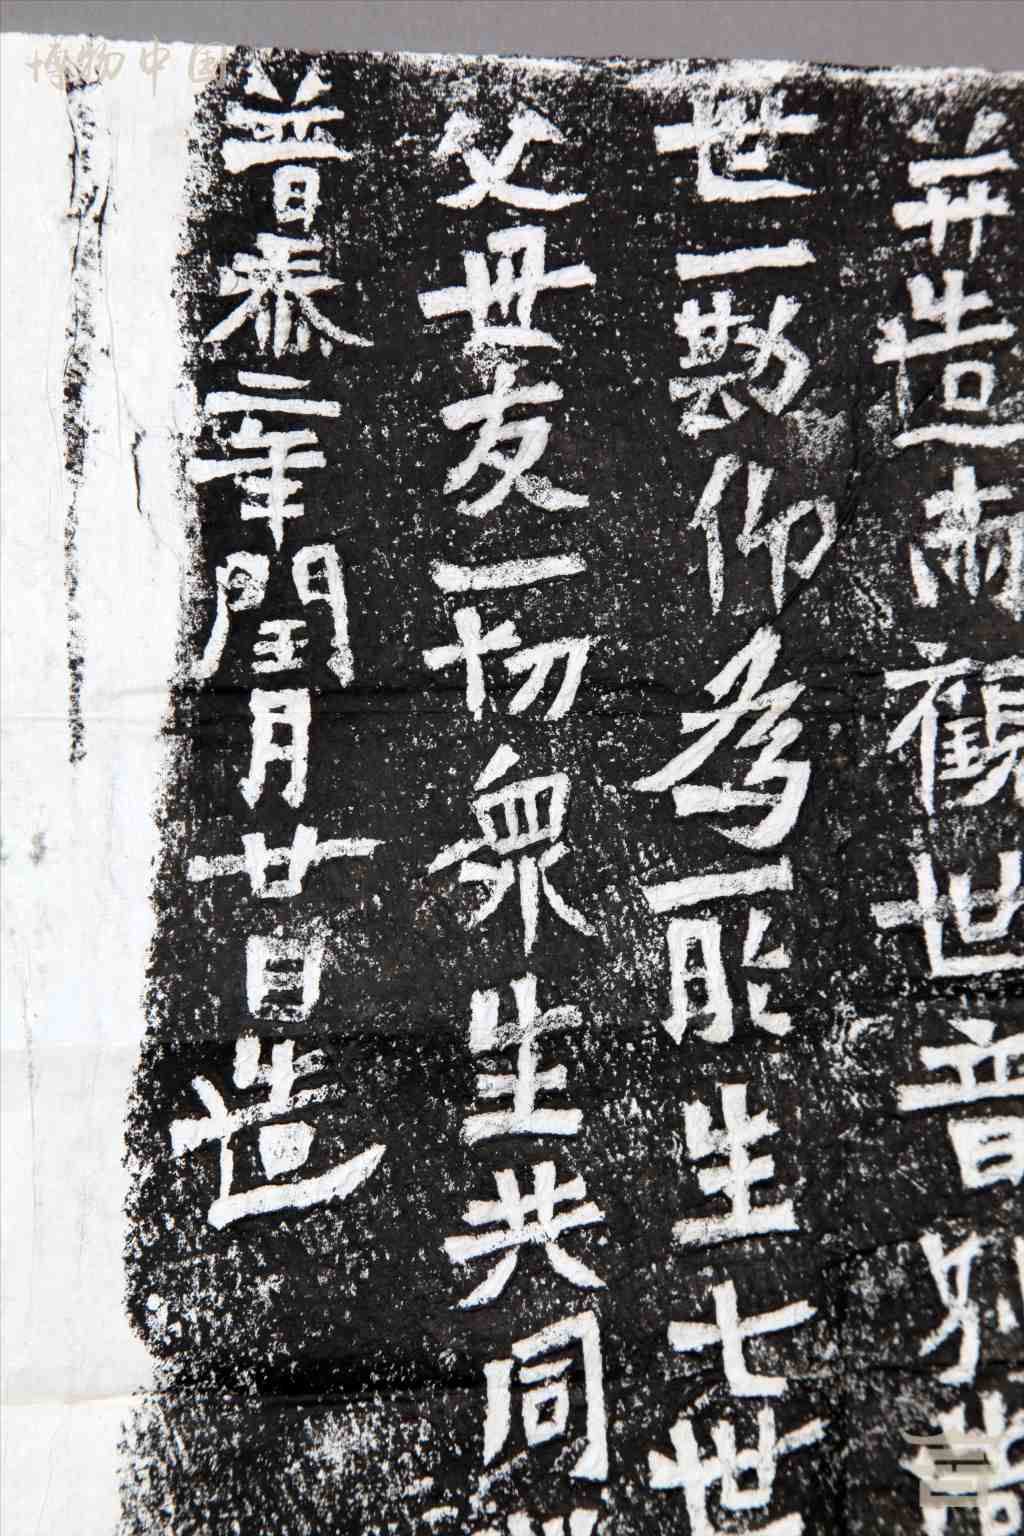 并造一觀世音
世一勘仰為所生七世
父母友一切衆生共同
普泰二年閏月廿日造
博物中国